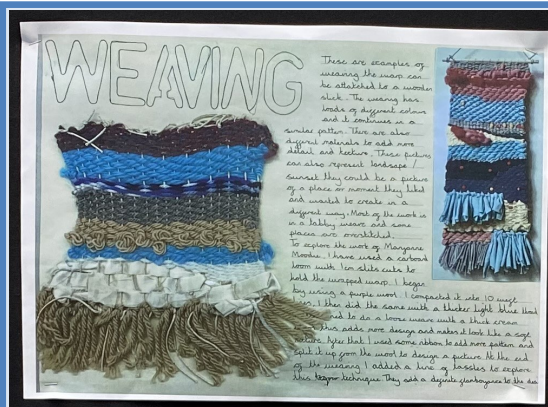 WEAVING
These are examples of
weaving the warp can
be attatched to a wooden
stick. The weaving has
loads of different colours
and it continues in a
similar pattern. There are also
different materials to add more
detail and texture. These pictures
can also represent landscape /
sunset they could be a picture
of a place or moment they liked
and wanted to create in a
different way. Most of the work is
in a tabby weave and some
places are overstitched.
To explore the work of Maryanne
Moodie, I have used a carboard
loom with 1cm slits cuts to
hold the wrapped warp. I began
by using a purple wool. I compacted it into 10
I then did the same with a thicker light blue
to do a loose weave with a thick cream
this adds more design and makes it look like a soft
After that I used some ribbon to add more pattern and
split it up from the wool to design a picture. At the end
of the weaving I added a line of tassles to explore
this technique. They add a definite to the